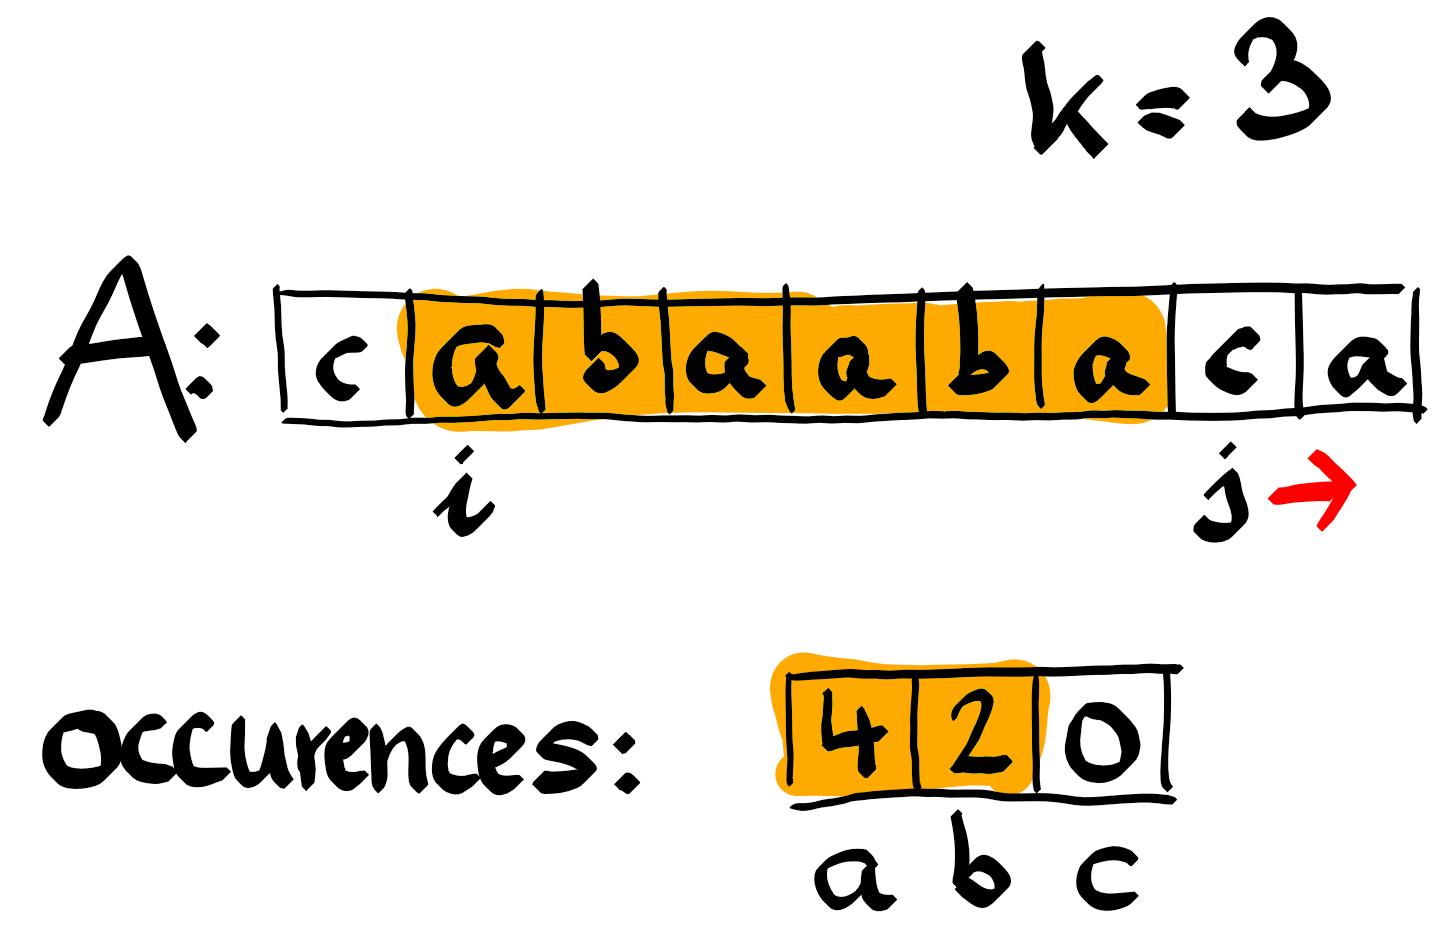 k = 3
A: c a b a a b a c a
i j →
occurences: 4 2 0
a b c